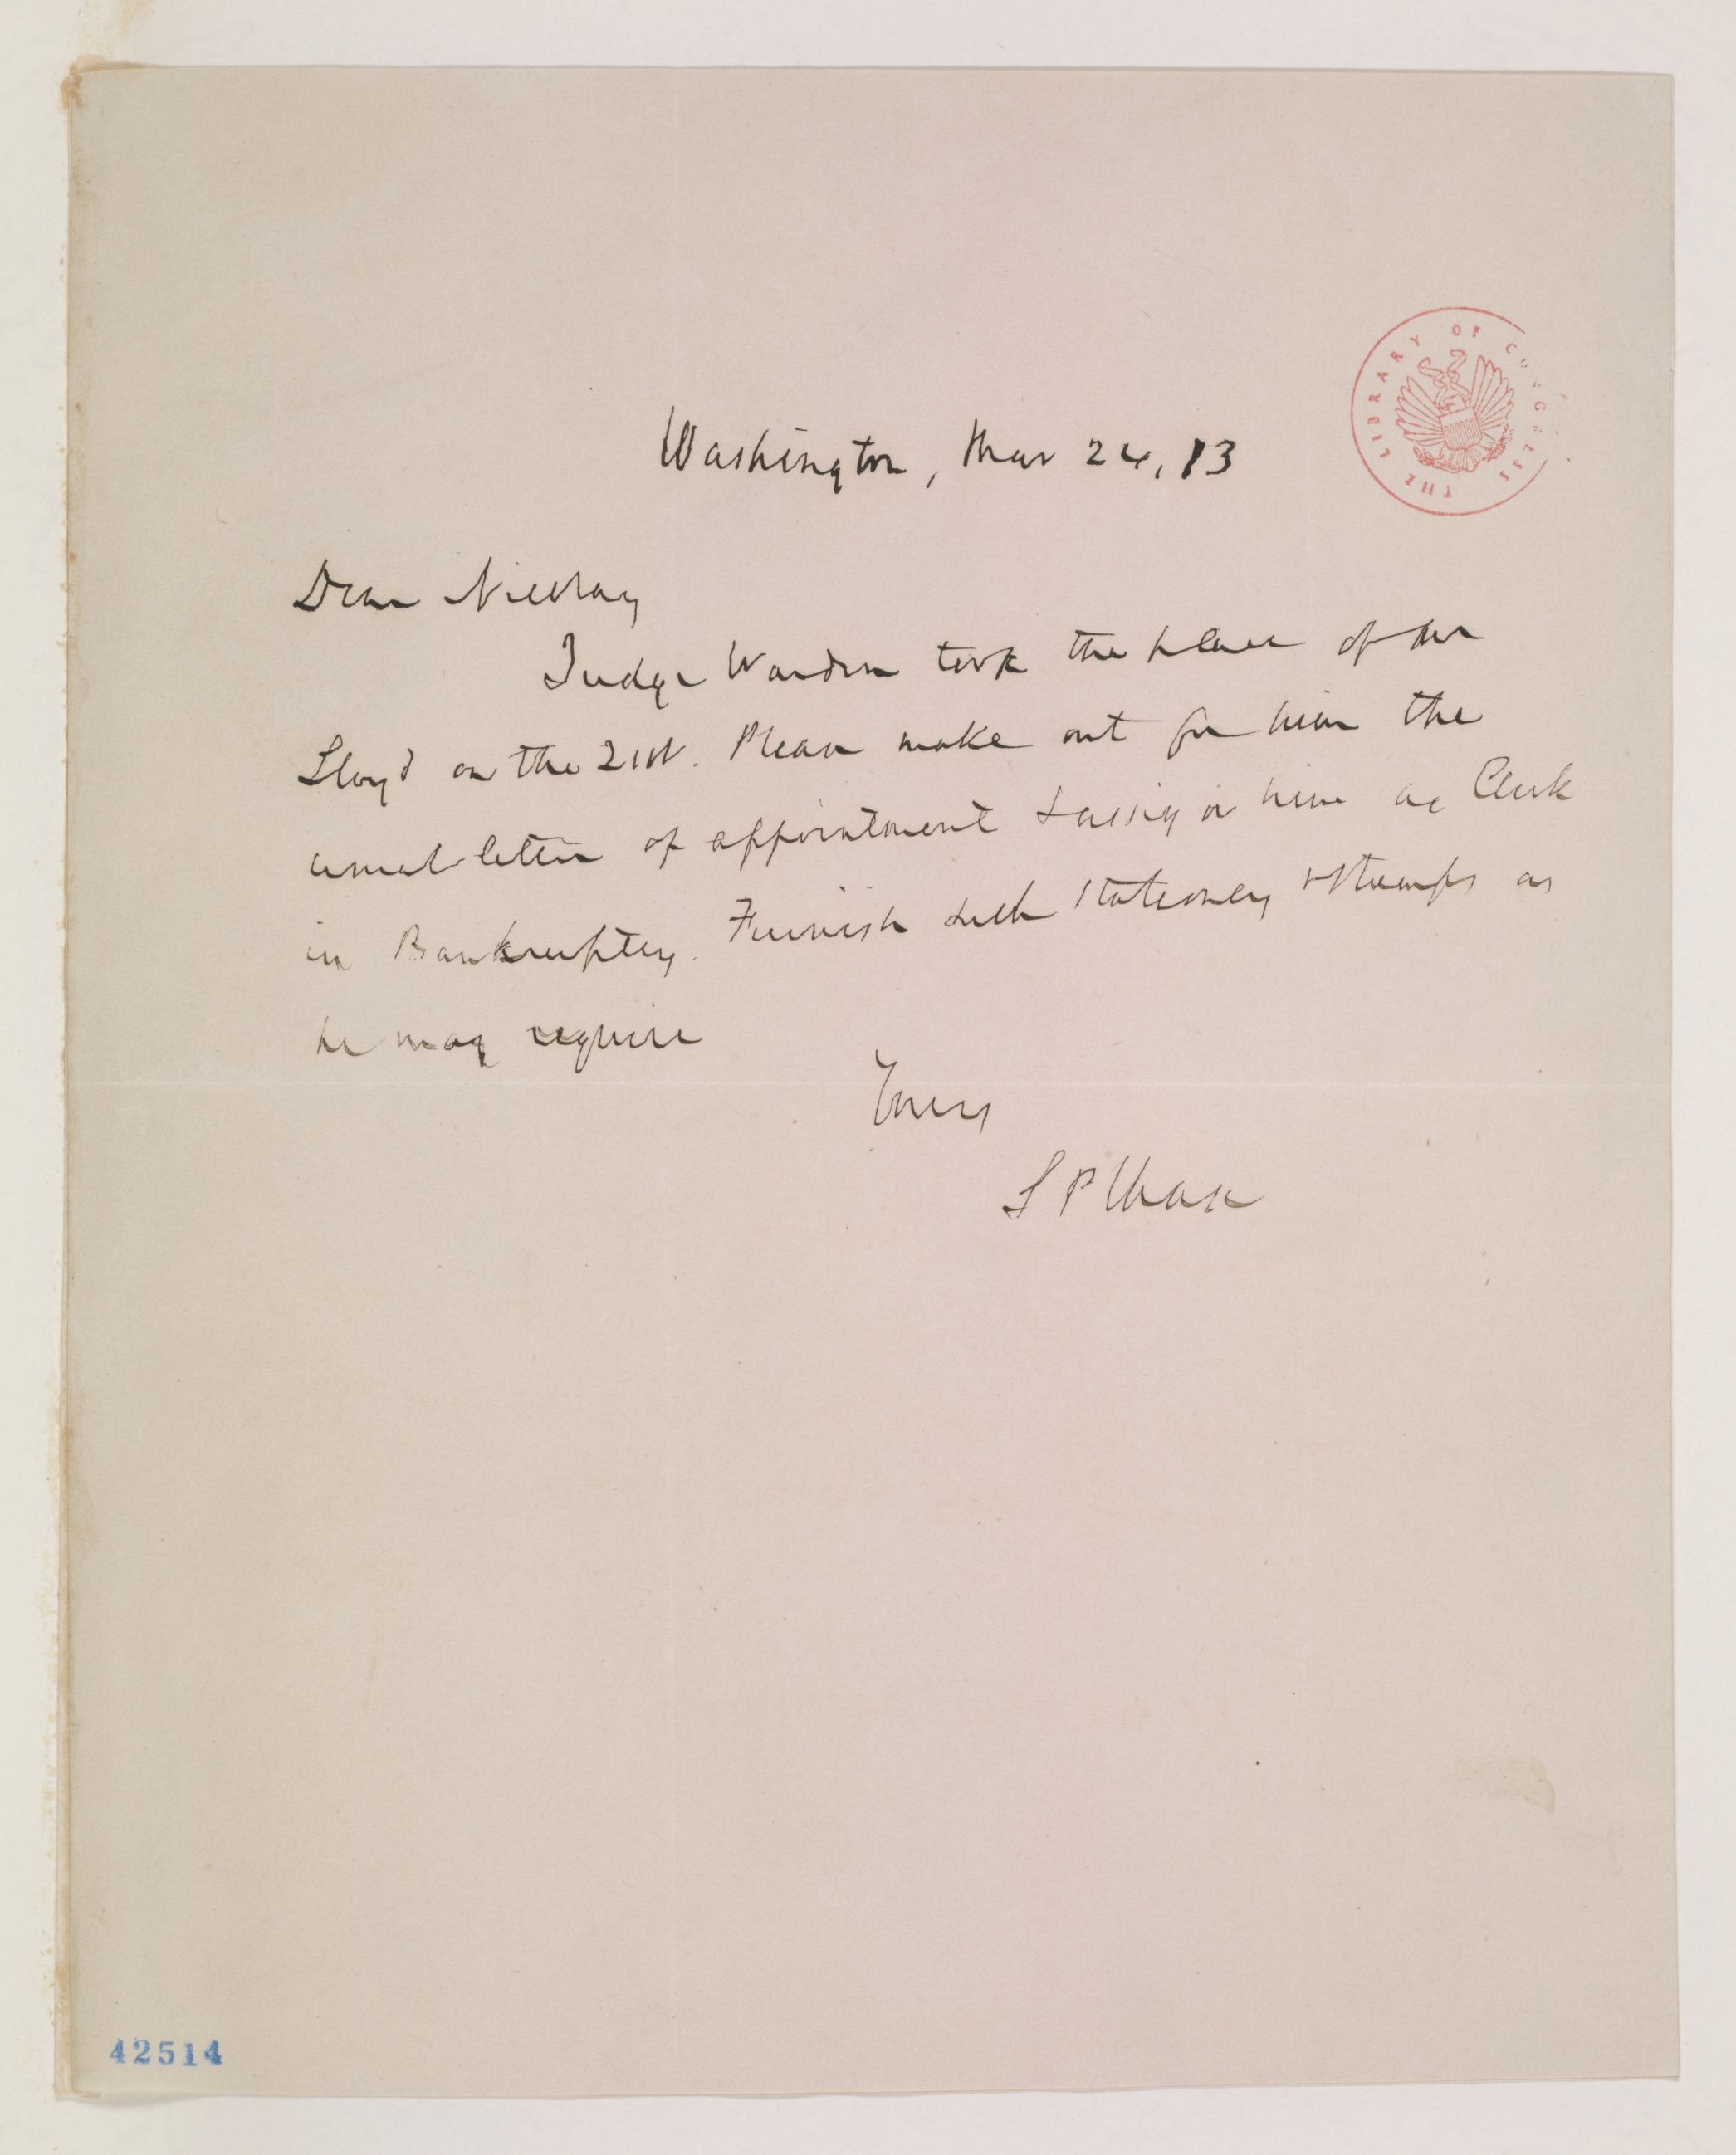 Washington, Mar 24, 73
THE LIBRARY OF CONGRESS
Dear Nicolay
Judge Warden took the place of Mr
Lloyd on the 21st. Please make out for him the
usual letter of appointment & assign him as Clerk
in Bankruptcy. Furnish such stationery & stamps as
he may require
Yours
S P Chase
42514